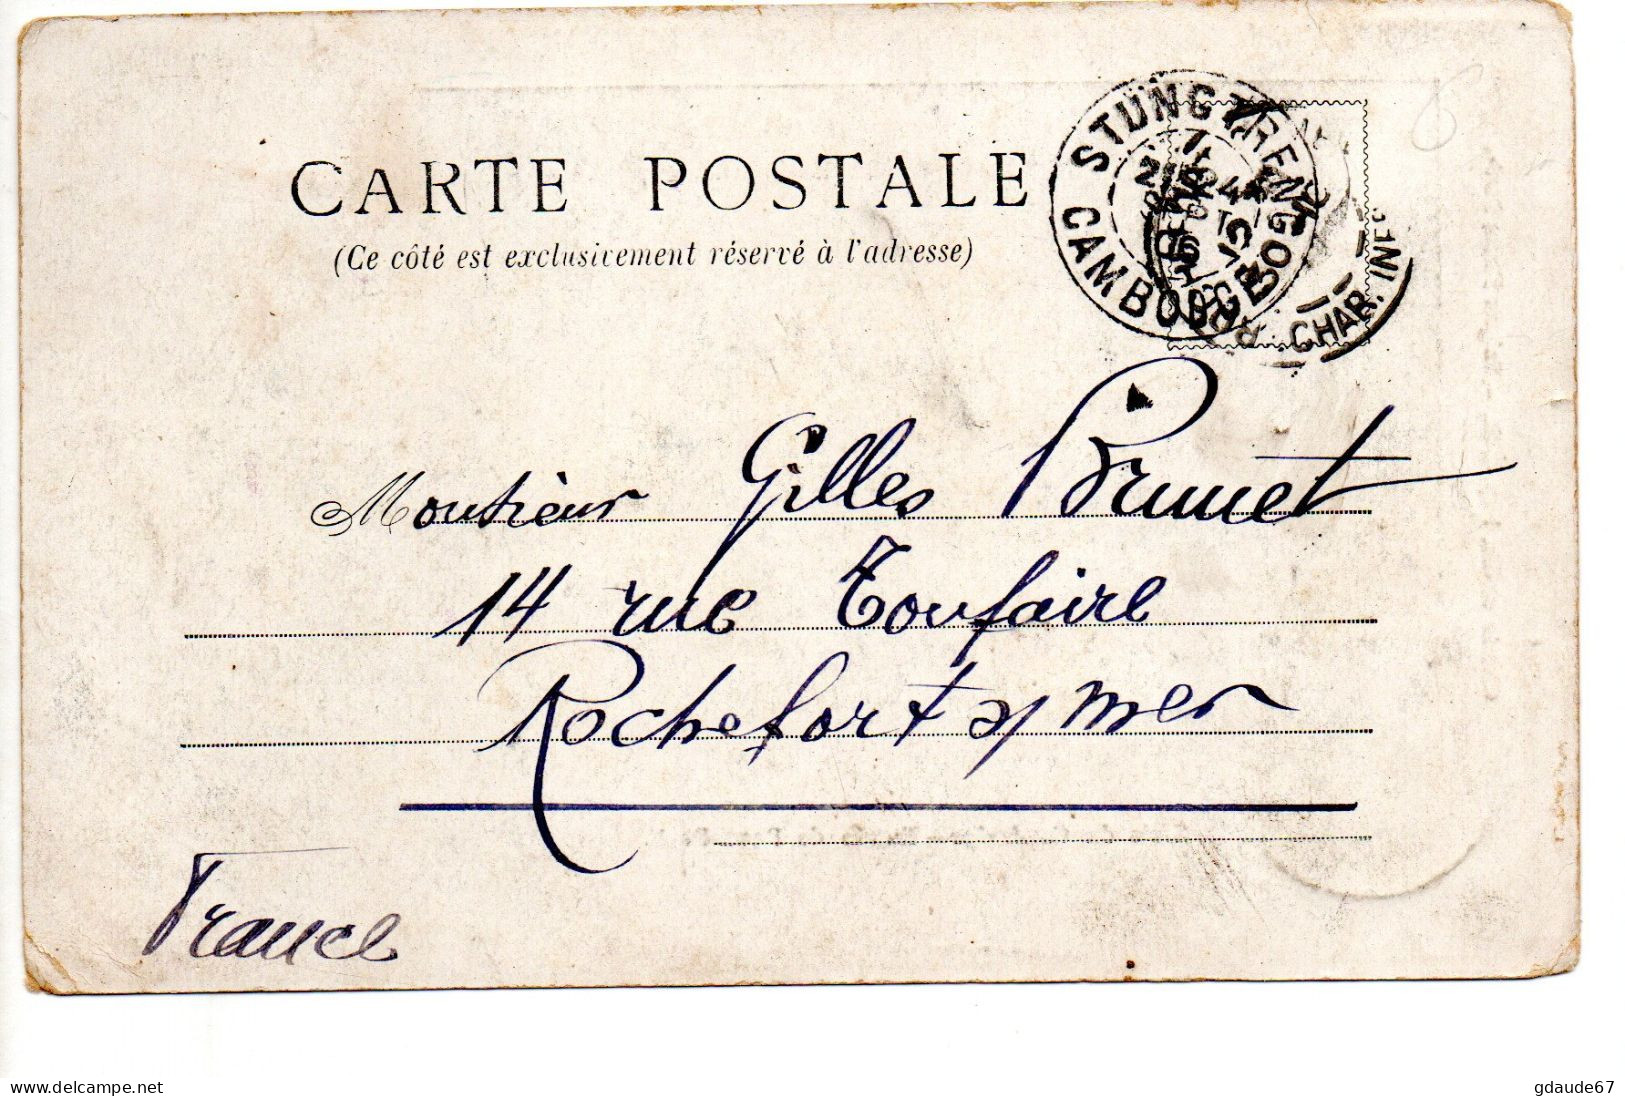 CARTE POSTALE
(Ce côté est exclusivement réservé à l'adresse)
STUNG TRENG
CAMBODGE
CHAR. INF
Monsieur Gilles Brunet
14 rue Toufaire
Rochefort s/ mer
France
www.delcampe.net
gdaude67